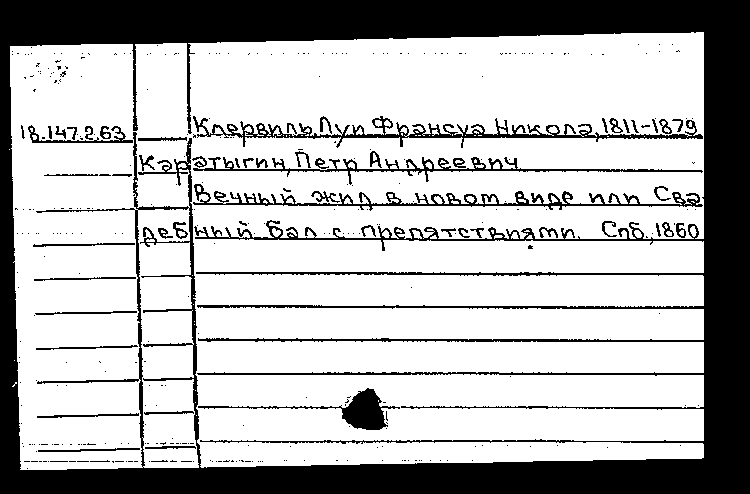 18.147.2.63 Клервиль, Луи Франсуа Никола, 1811-1879
Каратыгин, Петр Андреевич
Вечный жид в новом виде или Сва
дебный бал с препятствиями. Спб., 1860